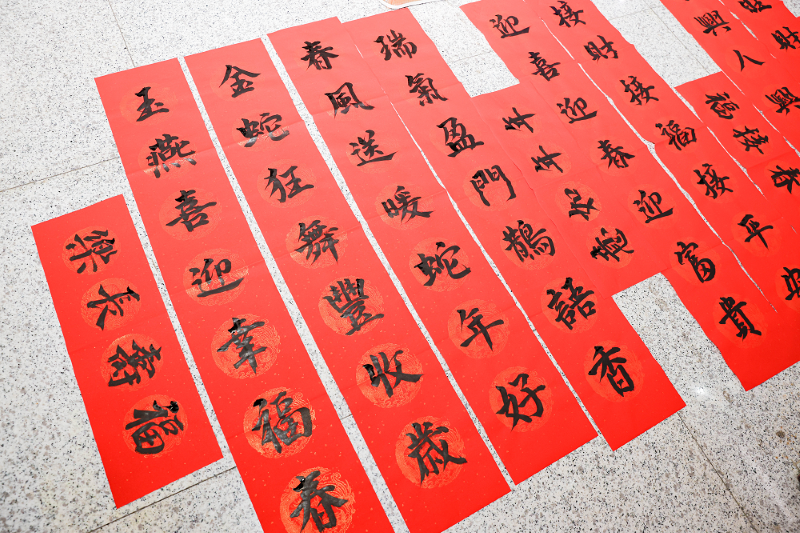 福壽長樂
玉燕喜迎幸福春
金蛇狂舞豐收歲
春風送暖蛇年好
瑞氣盈門鵲語香
迎喜迎春迎富貴
接財接福接平安
春接福
興人興
財